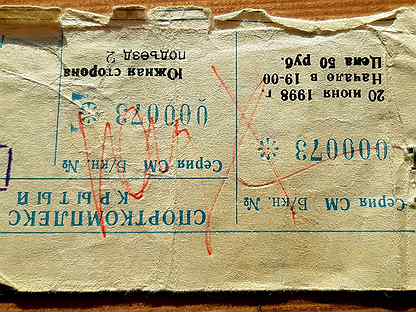 Серия СМ Б/кн. №
000073
20 июня 1998 г.
Начало в 19-00
Цена 50 руб.
СПОРТКОМПЛЕКС
КРЫТЫЙ
Серия СМ Б/кн. №
000073
Южная сторона
подъезд 2